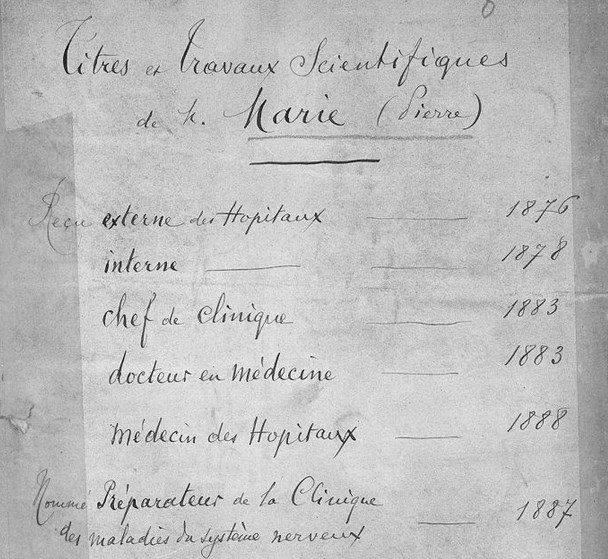 Titres et Travaux Scientifiques
de M. Marie (Pierre)
Reçu externe des Hopitaux — 1876
interne — — 1878
chef de clinique — 1883
docteur en médecine — 1883
Médecin des Hopitaux — 1888
Nommé Préparateur de la Clinique
des maladies du système nerveux — 1887